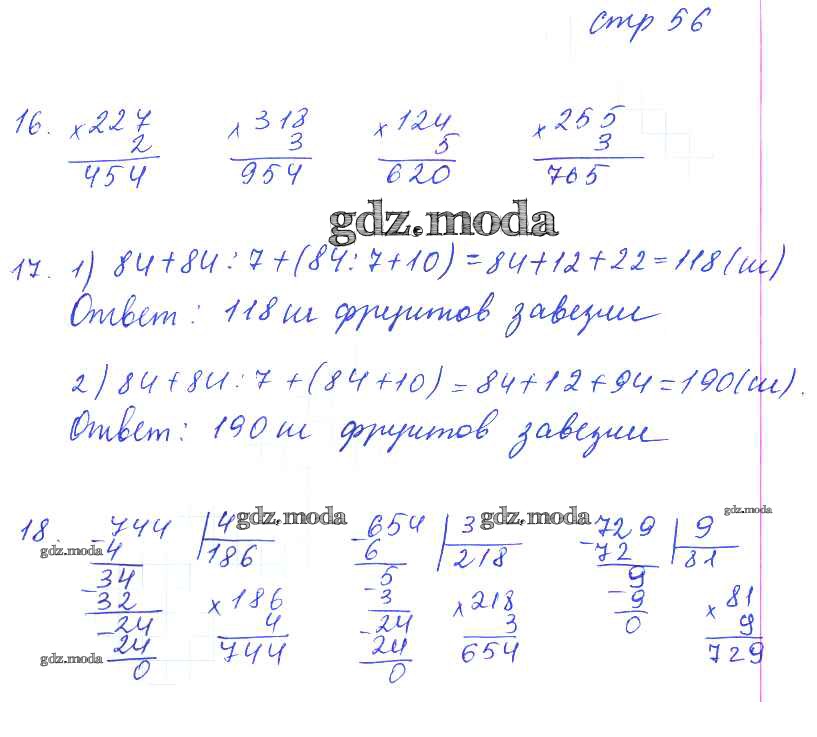 стр 56
16. × 227 × 318 × 124 × 255
2 3 5 3
454 954 620 765
gdz.moda
17. 1) 84+84:7+(84:7+10)=84+12+22=118(ш)
Ответ: 118 ш фруктов завезли
2) 84+84:7+(84+10)=84+12+94=190(ш).
Ответ: 190 ш фруктов завезли
gdz.moda gdz.moda gdz.moda
18. -744 4 -654 3 -729 9
gdz.moda 4 186 6 218 72 81
34 5 9
-32 × 186 -3 × 218 -9 × 81
-24 4 -24 3 0 9
24 744 24 654 729
gdz.moda 0 0